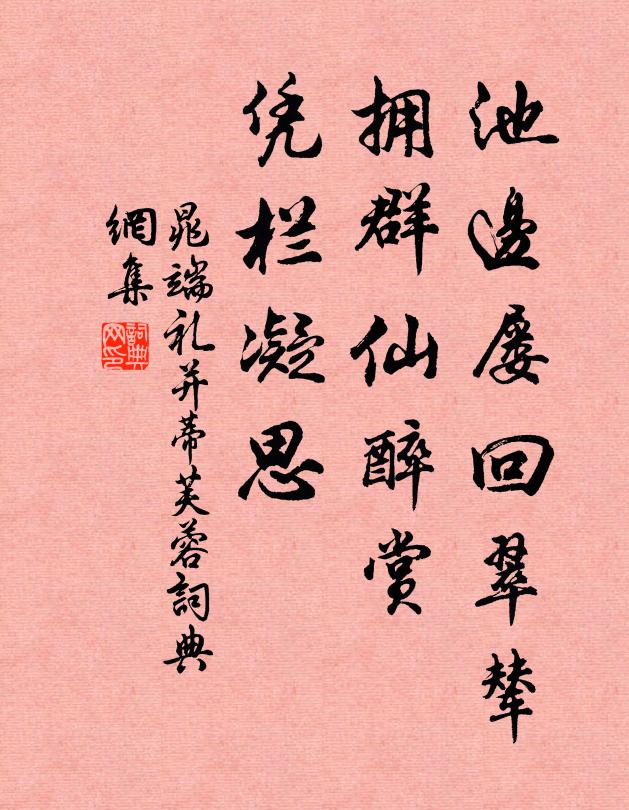 池邊屡回翠辇
拥群仙醉赏
凭栏凝思
晁端礼并蒂芙蓉詞典
網集
詞典
网印